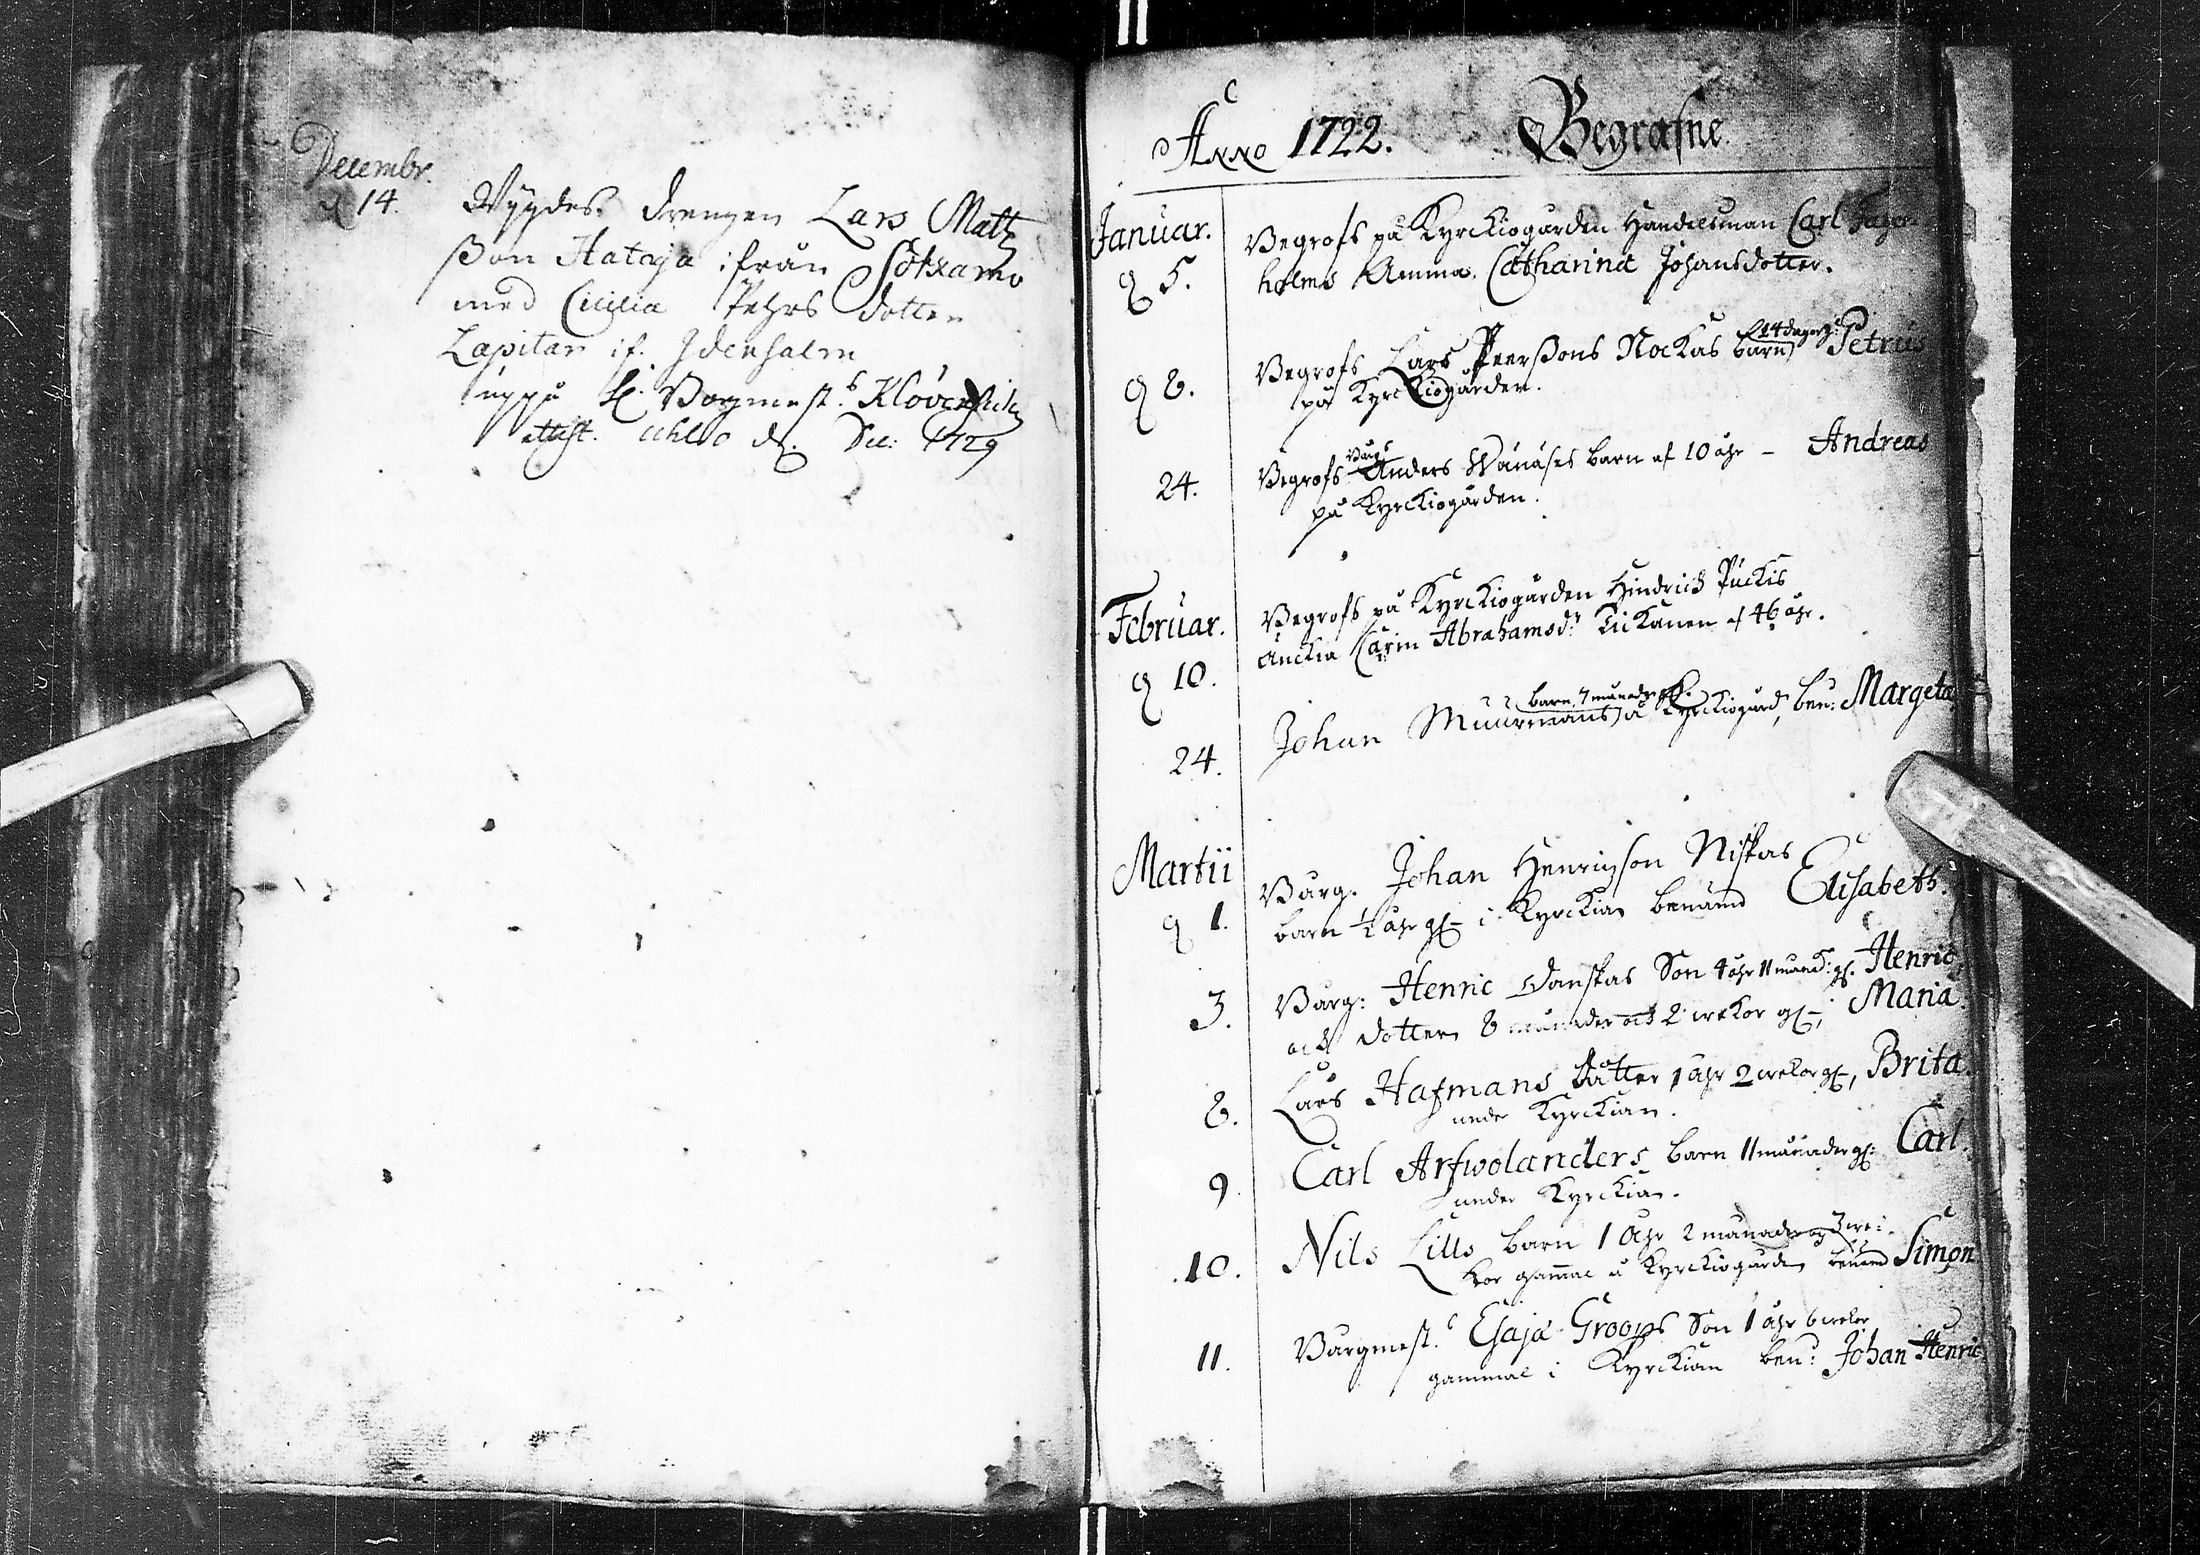 Decembr.
d 14.
Wygdes drengen Lars Matz
ßon Hataja ifrån Sotkamo
med Cicilia Pehrs dotter
Lapitar if. Idensalm
uppå H. Borgmest:s Klöverfeldtz
attest. Uhlo d. Dec: 1729
Anno 1722. Begrafne.
Januar.
d 5.
Begrofs på Kyrckiogården Handelsman Carl Fager-
holms Amma. Catharina Johansdotter.
d 8.
Begrofs Lars Peerßons Nockas barn 14 dagar g: Petrus
på Kyrckiogården.
24.
Begrofs Barg: Anders Wänäses barn af 10 åhr - Andreas
på Kyrckiogården.
Februar.
d 10.
Begrofs på Kyrckiogården Hindrich Puckis
änckia Carin Abrahamsd:r Tickanen af 46 åhr.
24.
Johan Muurmans barn 7 månader å Kyrckiogård, ben: Margeta
Martii
d 1.
Barg. Johan Henricson Niskas
barn ½ åhr gl i Kyrckian benämd Elisabeth.
3.
Barg: Henric Danskas Son 4 åhr 11 månad: gl. Henric,
och dotter 8 månader och 2 wekor gl, Maria.
8.
Lars Hafmans dåtter 1 åhr 2 wekor gl, Brita.
under Kyrckian.
9.
Carl Arfwolanders barn 11 månader gl: Carl.
under Kyrckian.
10.
Nils Lills barn 1 åhr 2 månader og 3 we-
kor gammal å Kyrckiogården benämd Simon
11.
Bargmest. Esaja Groops Son 1 åhr 6 wekor
gammal i Kyrckian ben: Johan Henric